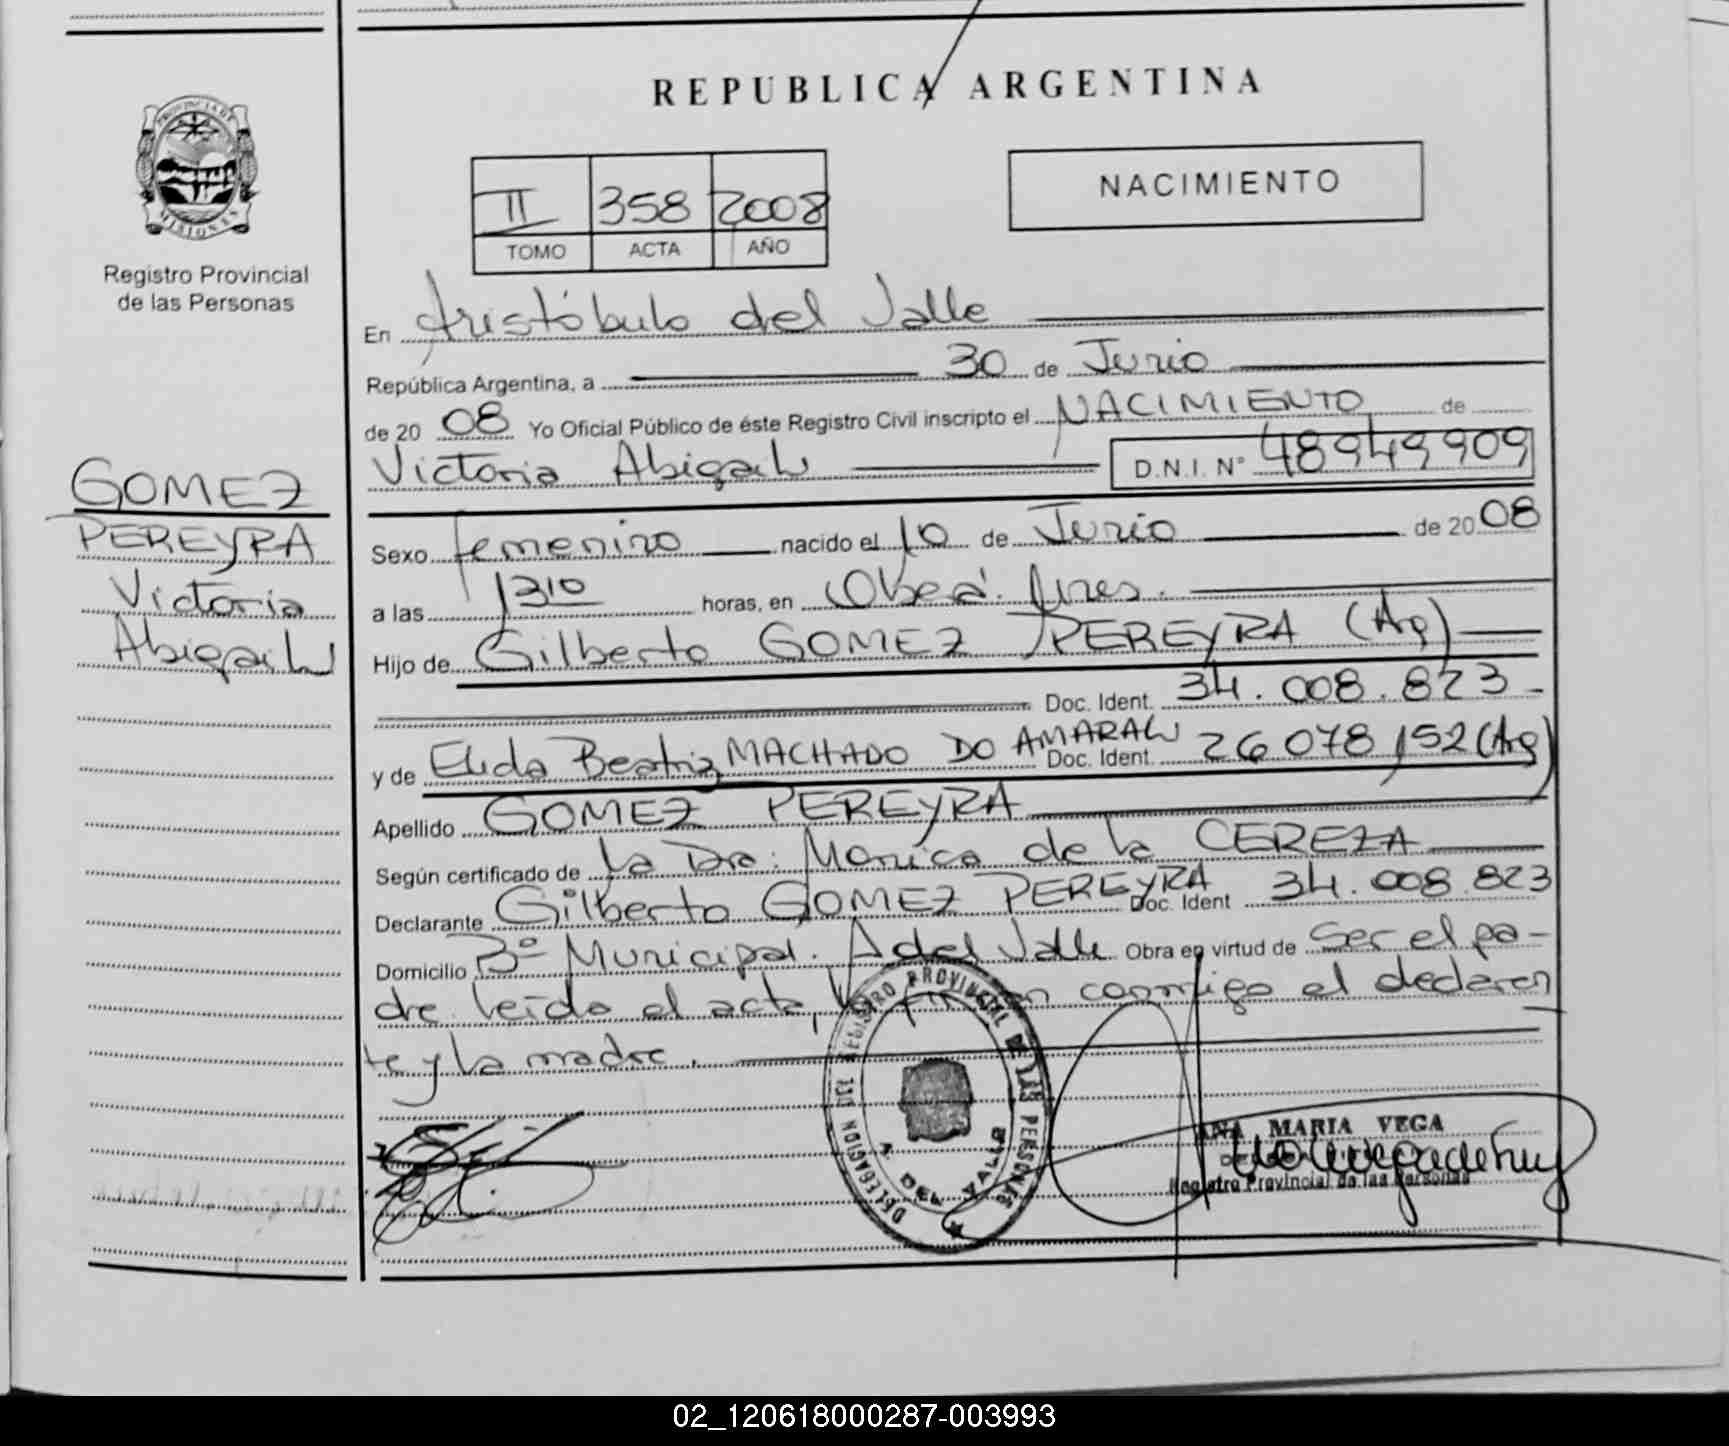 REPUBLICA ARGENTINA
PROVINCIA DE
MISIONES
Registro Provincial
de las Personas
II 358 2008
TOMO ACTA AÑO
NACIMIENTO
En Aristóbulo del Valle
República Argentina, a 30 de Junio
de 20 08 Yo Oficial Público de éste Registro Civil inscripto el NACIMIENTO de
Victoria Abigail D.N.I. N° 48949909
GOMEZ
PEREYRA
Victoria
Abigail
Sexo femenino nacido el 10 de Junio de 20 08
a las 1310 horas, en Oberá. Mnes.
Hijo de Gilberto GOMEZ PEREYRA (Arg)
Doc. Ident. 34.008.823
y de Elida Beatriz MACHADO DO AMARAL Doc. Ident. 26078152 (Arg)
Apellido GOMEZ PEREYRA
Según certificado de la Dra: Monica de la CEREZA
Declarante GilbertO GOMEZ PEREYRA Doc. Ident 34.008.823
Domicilio B° Municipal. A del Valle Obra en virtud de ser el pa-
dre leída el acta, conmigo el declaran
te y la madre.
REGISTRO PROVINCIAL DE LAS PERSONAS
DELEGACION
A. DEL VALLE
ANA MARIA VEGA
Registro Provincial de las Personas
02_120618000287-003993